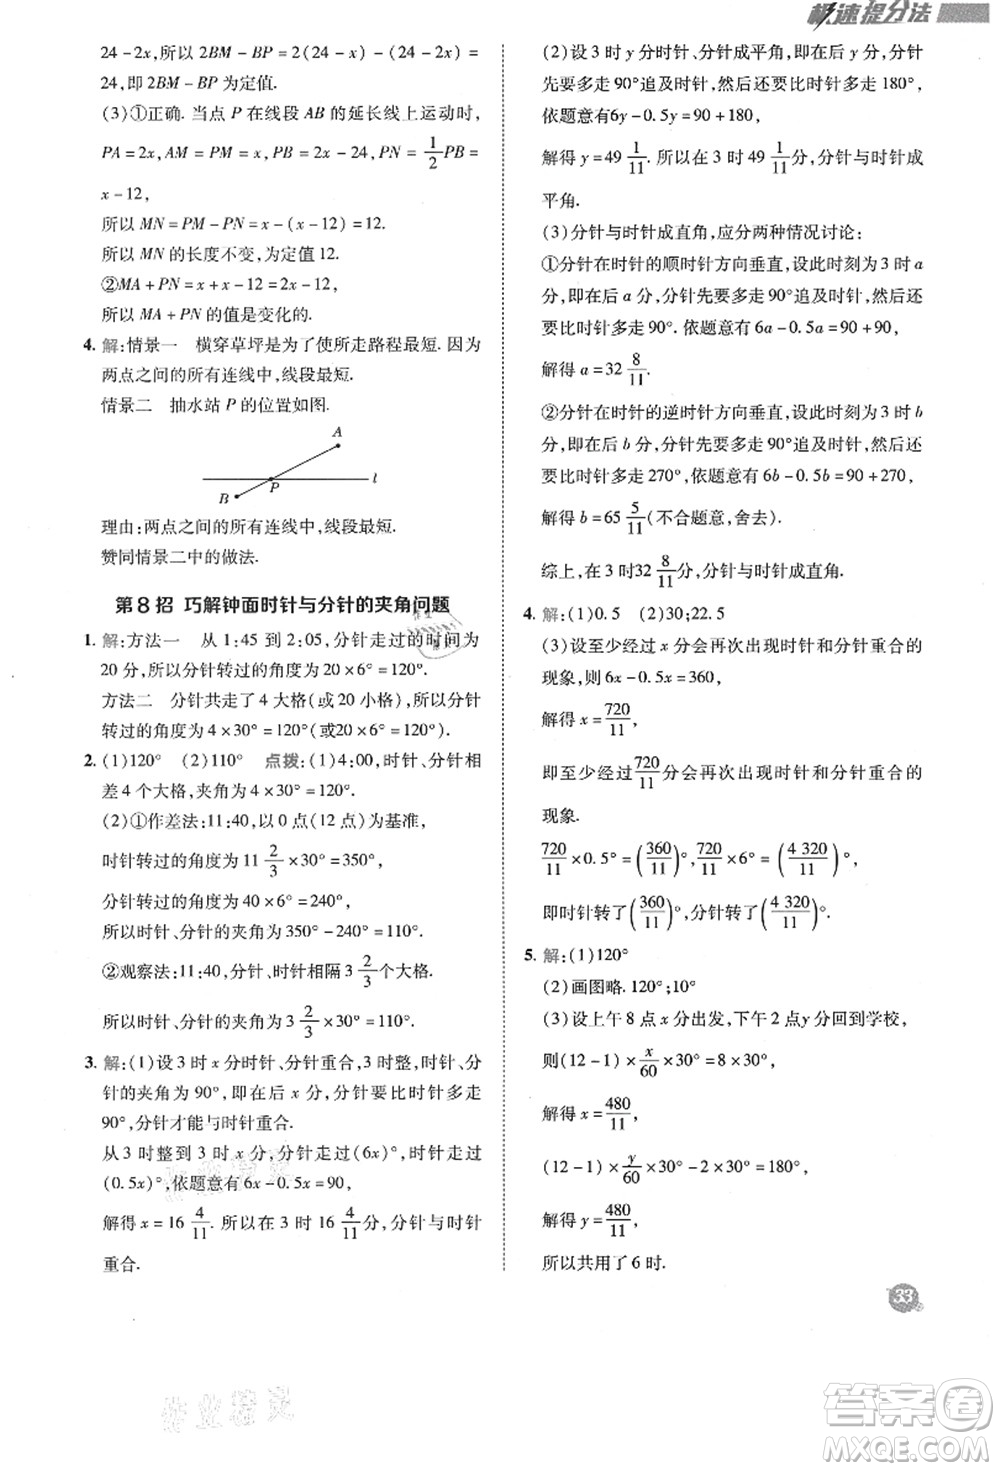 极速提分法
24-2x,所以 2BM-BP=2(24-x)-(24-2x)=
24,即 2BM-BP 为定值.
(3)①正确. 当点 P 在线段 AB 的延长线上运动时,
PA=2x,AM=PM=x,PB=2x-24,PN=1/2PB=
x-12,
所以 MN=PM-PN=x-(x-12)=12.
所以 MN 的长度不变,为定值 12.
②MA+PN=x+x-12=2x-12,
所以 MA+PN 的值是变化的.
4. 解:情景一 横穿草坪是为了使所走路程最短. 因为
两点之间的所有连线中,线段最短.
情景二 抽水站 P 的位置如图.
A
P
l
B
理由:两点之间的所有连线中,线段最短.
赞同情景二中的做法.
第 8 招 巧解钟面时针与分针的夹角问题
1. 解:方法一 从 1:45 到 2:05,分针走过的时间为
20 分,所以分针转过的角度为 20×6°=120°.
方法二 分针共走了 4 大格(或 20 小格),所以分针
转过的角度为 4×30°=120°(或20×6°=120°).
2. (1)120° (2)110° 点拨:(1)4:00,时针、分针相
差 4 个大格,夹角为 4×30°=120°.
(2)①作差法:11:40,以 0 点(12 点)为基准,
时针转过的角度为 11 2/3×30°=350°,
分针转过的角度为 40×6°=240°,
所以时针、分针的夹角为 350°-240°=110°.
②观察法:11:40,分针、时针相隔 3 2/3个大格,
所以时针、分针的夹角为 3 2/3×30°=110°.
3. 解:(1)设 3 时 x 分时针、分针重合,3 时整,时针、分
针的夹角为 90°,即分针要比时针多走
90°,分针才能与时针重合.
从 3 时整到 3 时 x 分,分针走过(6x)°,时针走过
(0.5x)°,依题意有 6x-0.5x=90,
解得 x=16 4/11. 所以在 3 时 16 4/11分,分针与时针
重合.
(2)设 3 时 y 分时针、分针成平角,即在 3 时后 y 分,分针
先要多走 90°追及时针,然后还要比时针多走 180°,
依题意有6y-0.5y=90+180,
解得 y=49 1/11. 所以在 3 时 49 1/11分,分针与时针成
平角.
(3)分针与时针成直角,应分两种情况讨论:
①分针在时针的顺时针方向垂直,设此时刻为 3 时 a
分,即在后 a 分,分针先要多走 90°追及时针,然后还
要比时针多走 90°. 依题意有 6a-0.5a=90+90,
解得 a=32 8/11.
②分针在时针的逆时针方向垂直,设此时刻为 3 时 b
分,即在后 b 分,分针先要多走 90°追及时针,然后还
要比时针多走 270°,依题意有 6b-0.5b=90+270,
解得 b=65 5/11(不合题意,舍去).
综上,在 3 时 32 8/11分,分针与时针成直角.
4. 解:(1)0.5 (2)30;22.5
(3)设至少经过 x 分会再次出现时针和分针重合的
现象,则 6x-0.5x=360,
解得 x=720/11,
即至少经过720/11分会再次出现时针和分针重合的
现象.
720/11×0.5°=(360/11)°,720/11×6°=(4 320/11)°,
即时针转了(360/11)°,分针转了(4 320/11)°.
5. 解:(1)120°
(2)画图略. 120°;10°
(3)设上午 8 点 x 分出发,下午 2 点 y 分回到学校,
则(12-1)×x/60×30°=8×30°,
解得 x=480/11,
(12-1)×y/60×30°-2×30°=180°,
解得 y=480/11,
所以共用了 6 时.
33
答案卷
MXQE.COM